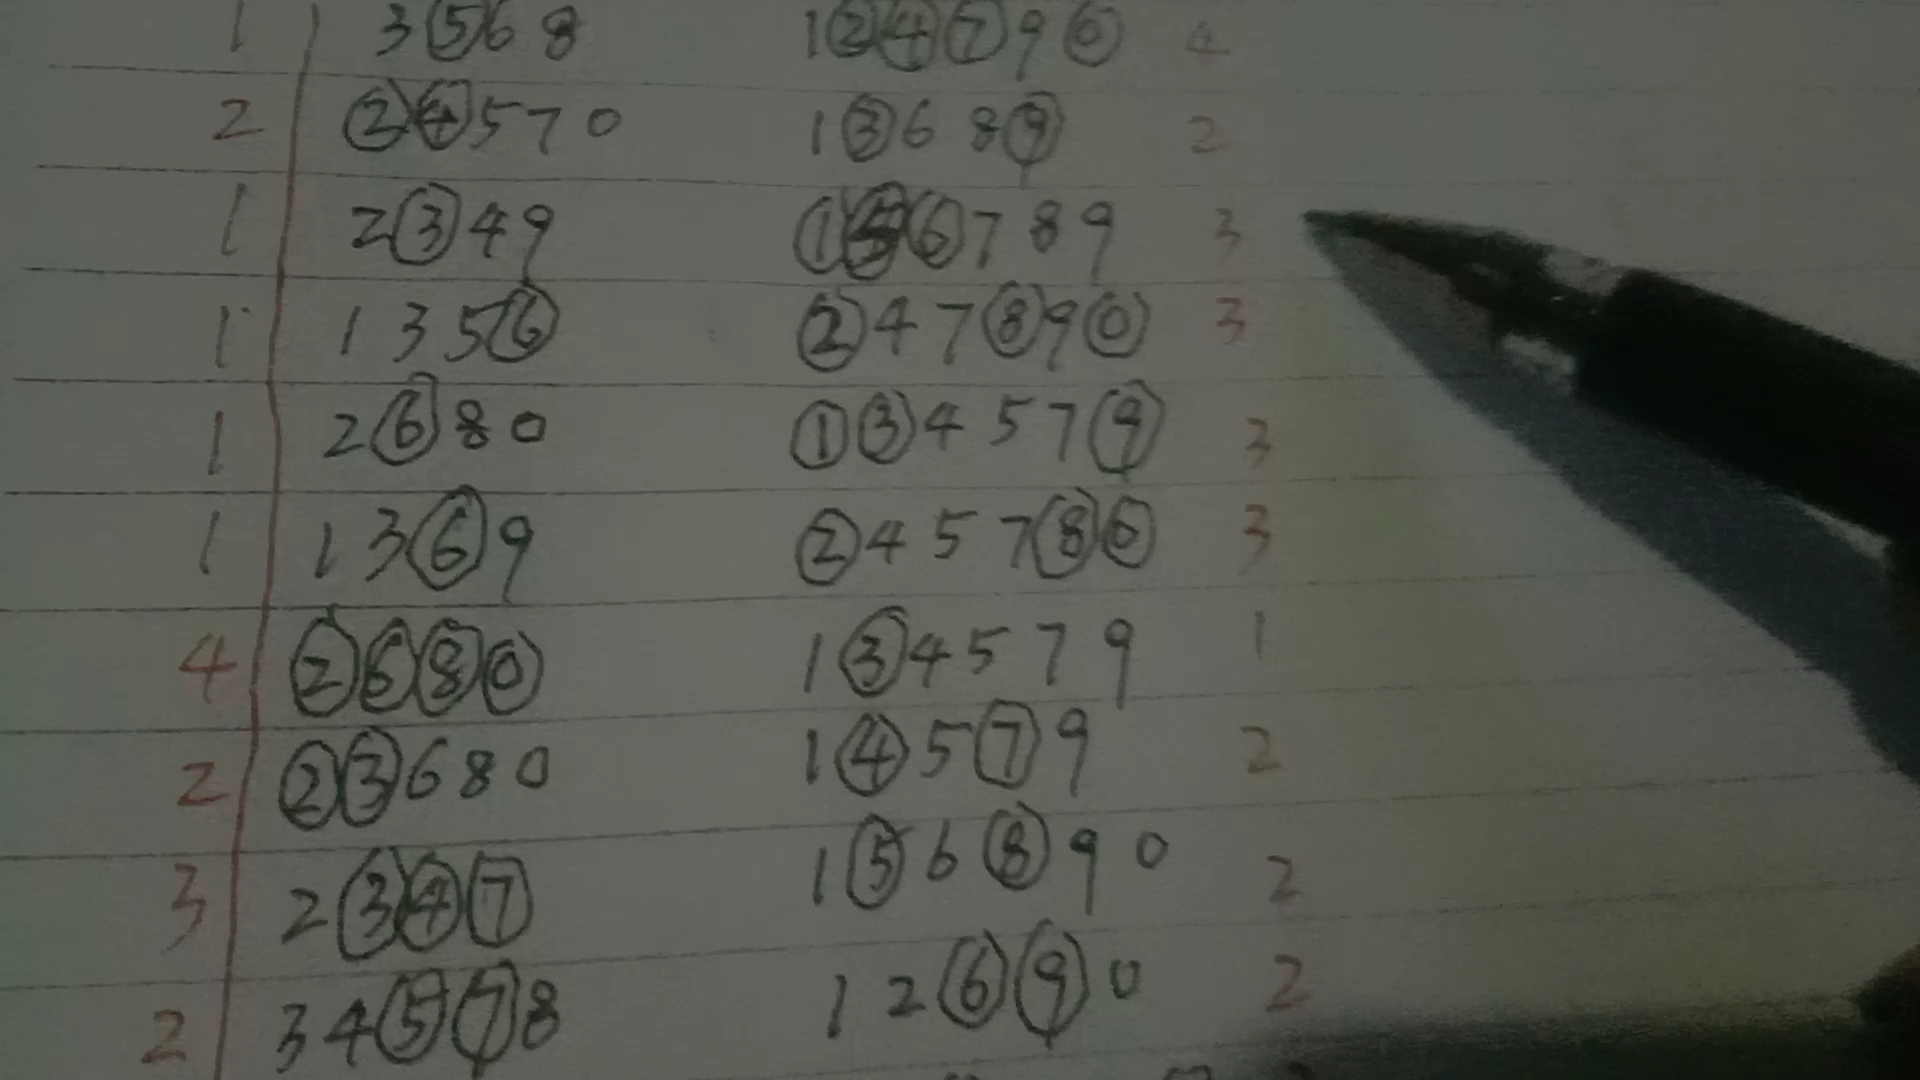 1 3⑤68 1②④⑦9⓪ 4
2 ②④570 1③68⑨ 2
1 2③49 ①⑤⑥789 3
1 135⑥ ②47⑧9⓪ 3
1 2⑥80 ①③457⑨ 3
1 13⑥9 ②457⑧⓪ 3
4 ②⑥⑧⓪ 1③4579 1
2 ②③680 1④5⑦9 2
3 2③④⑦ 1⑤6⑧90 2
2 34⑤⑦8 12⑥⑨0 2